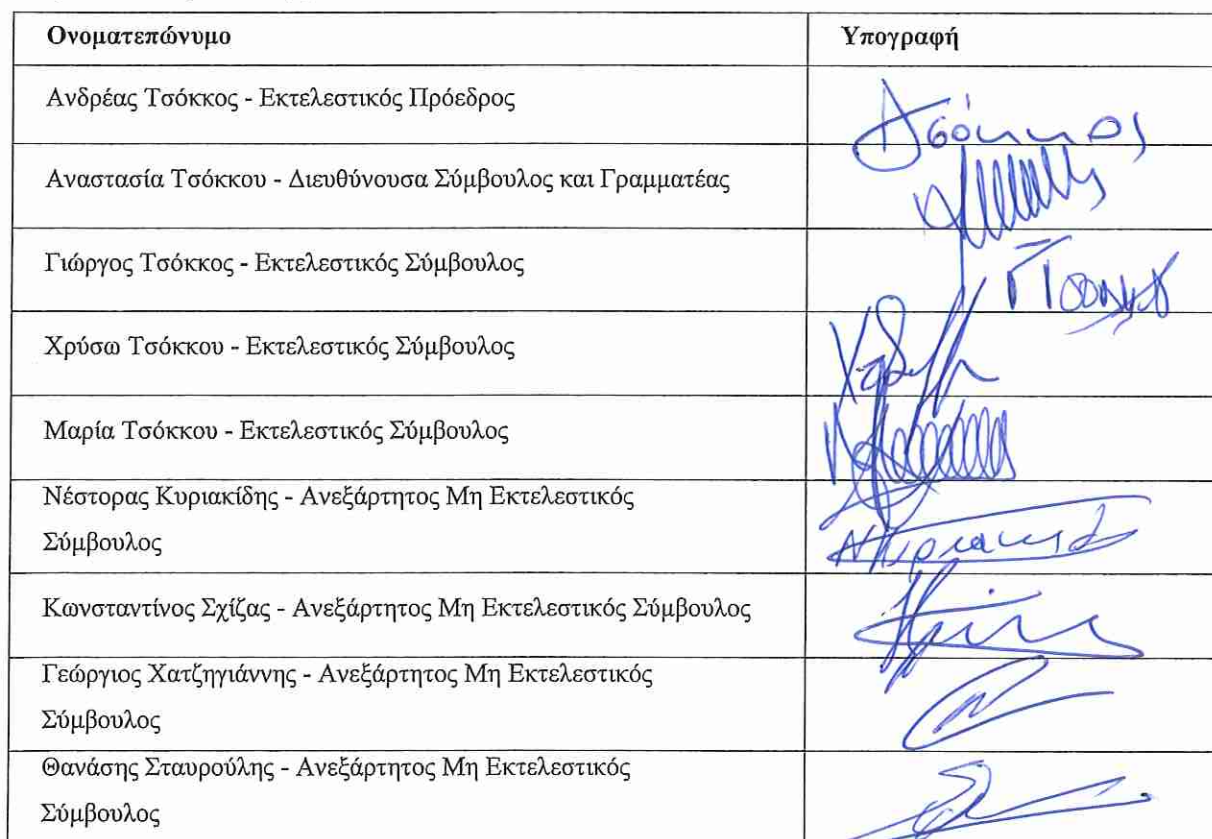 Ονοματεπώνυμο Υπογραφή
Ανδρέας Τσόκκος - Εκτελεστικός Πρόεδρος
Αναστασία Τσόκκου - Διευθύνουσα Σύμβουλος και Γραμματέας
Γιώργος Τσόκκος - Εκτελεστικός Σύμβουλος
Χρύσω Τσόκκου - Εκτελεστικός Σύμβουλος
Μαρία Τσόκκου - Εκτελεστικός Σύμβουλος
Νέστορας Κυριακίδης - Ανεξάρτητος Μη Εκτελεστικός
Σύμβουλος
Κωνσταντίνος Σχίζας - Ανεξάρτητος Μη Εκτελεστικός Σύμβουλος
Γεώργιος Χατζηγιάννης - Ανεξάρτητος Μη Εκτελεστικός
Σύμβουλος
Θανάσης Σταυρούλης - Ανεξάρτητος Μη Εκτελεστικός
Σύμβουλος